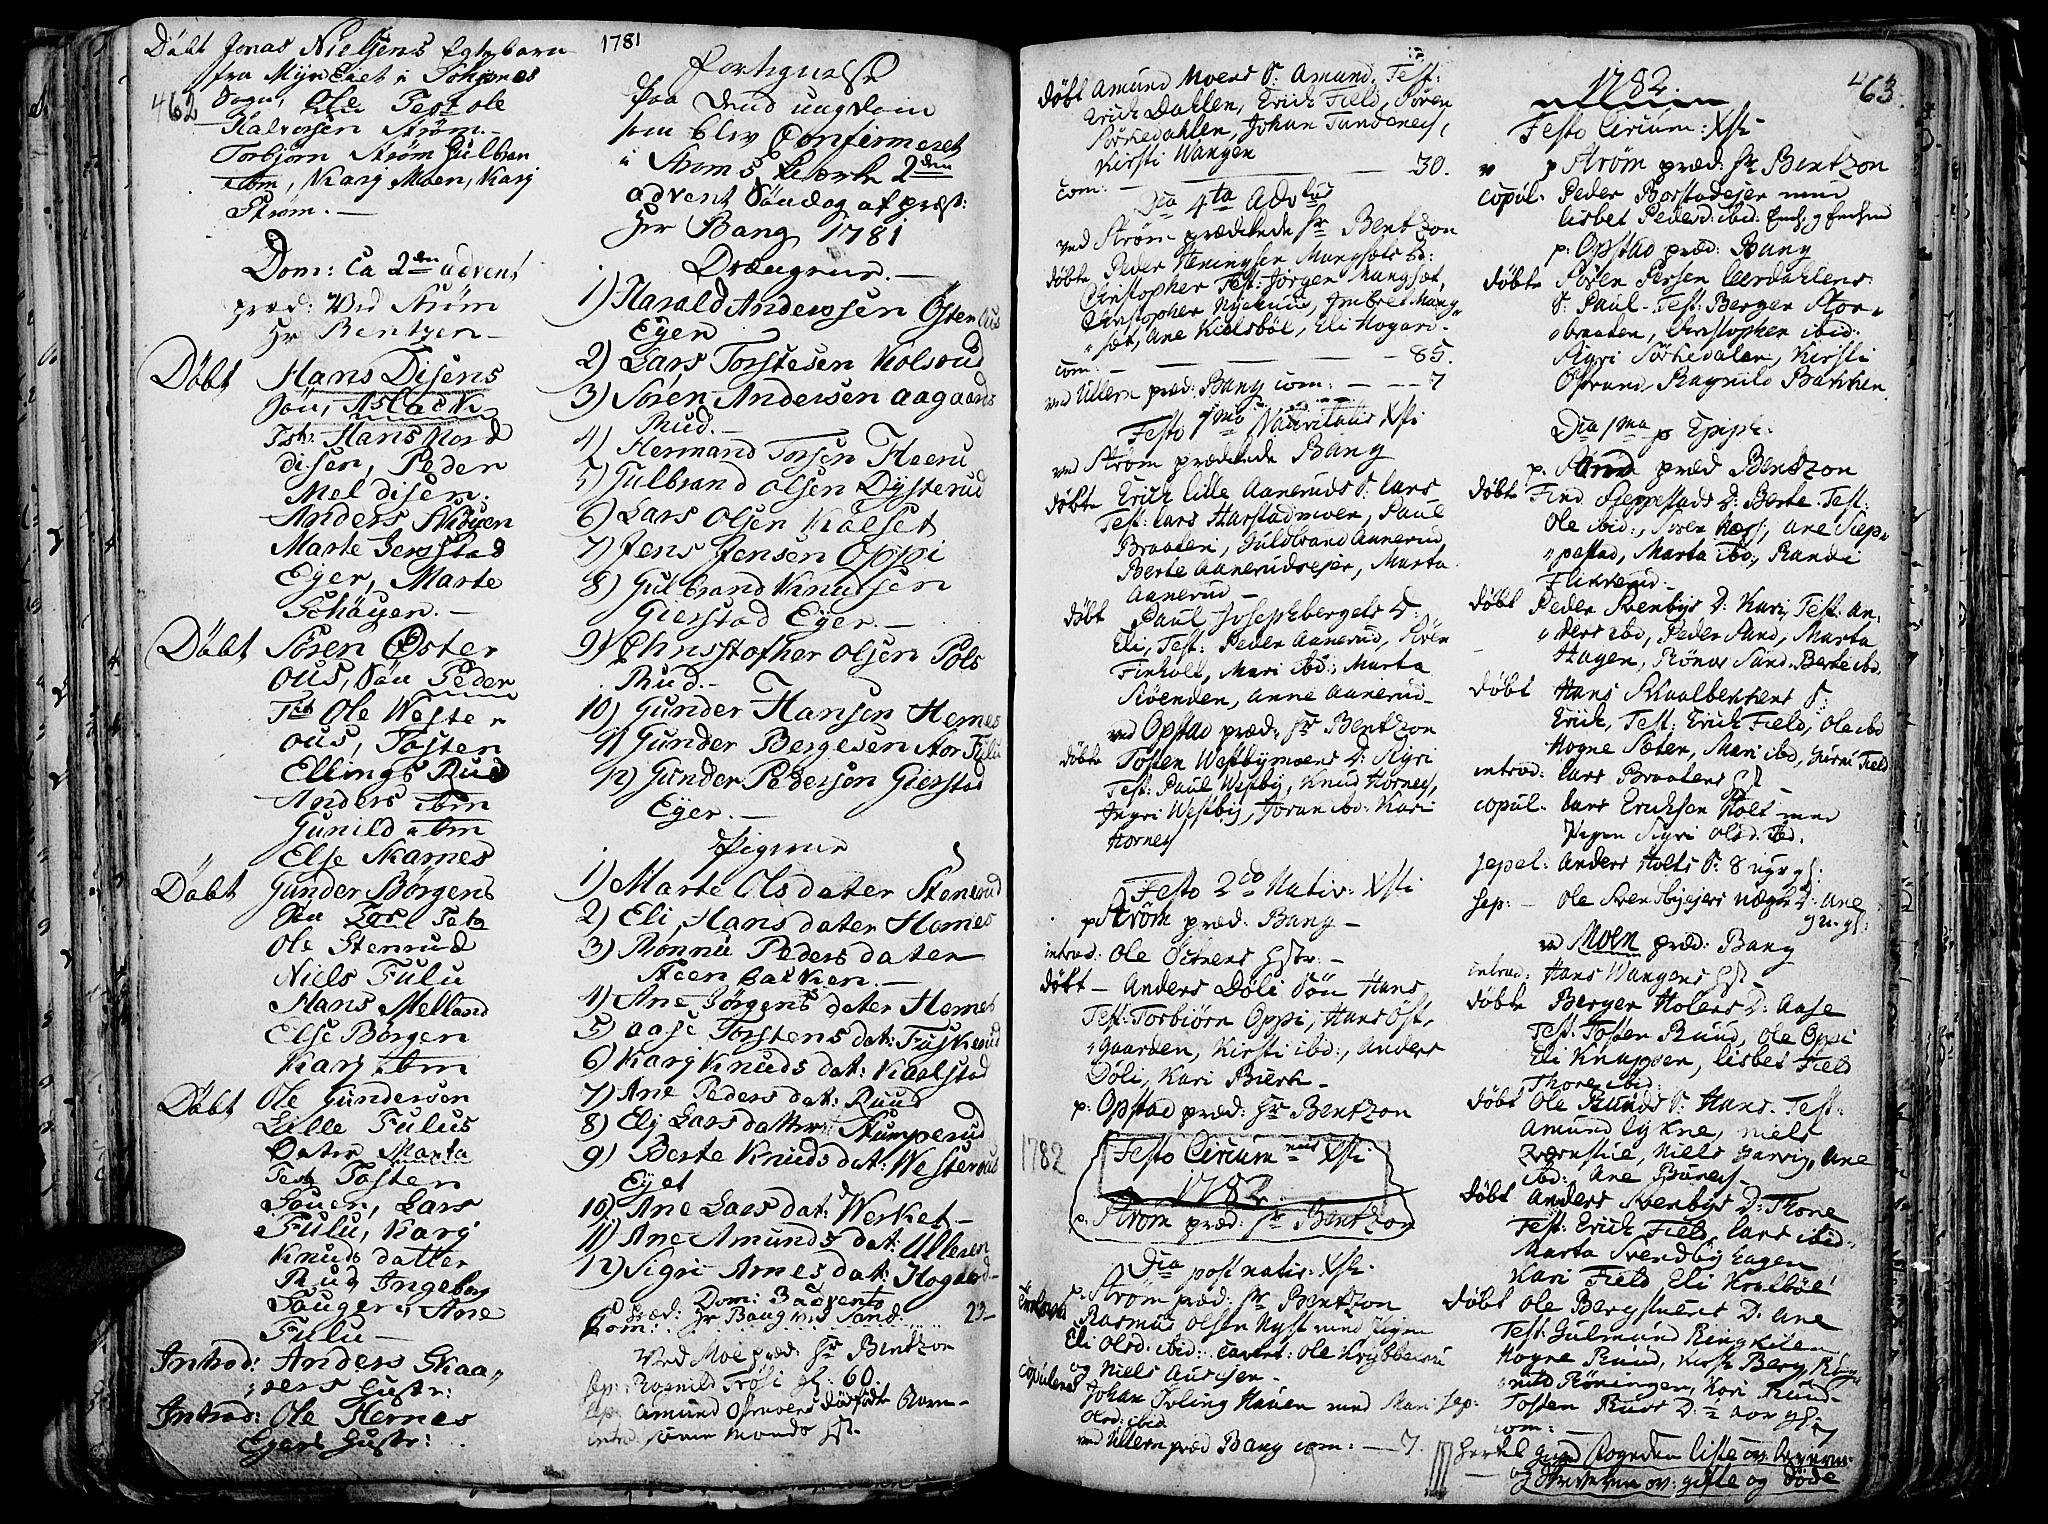 Döbt Jonas Nielsens Egtebarn
fra Myr Eiet i
462
Sogn, Ole Test Ole
Halvorsen Strøm.
Torbjørn Strøm Gulbran
ibm, Karj Moen, Karj
Strøm.
Dom: ca 2den advent
præd: Ved Strøm
Hr Bentzen
Döbt Hans Disens
Søn, Aslack
Test: Hans Nord
disen, Peder
Mel disen.
Anders Skøyen
Marte Gerstad
Eyer, Marte
Schøyen.
Döbt Sören Öster
ous, Sön Peder
Test Ole Wester
ous, Tosten
Ellings Rud
Anders ibm
Gunild ibm
Else Skarnes
Döbt Gunder Börgens
Sön Lars Test
Ole Stenrud
Niels Fulu
Hans Melland
Else Börgen
Karj ibm
Döbt Ole Gundersen
Lille Fulus
Dater Marta
Test Tosten
Sauer, Lars
Fulu, Karj
Knuds datter
Rud Ingeborg
Sauger, Ane
Fulu
Introd: Anders Skaa
rers Hustr:
Introd: Ole Hernes
Ejers Hustr:
1781
Fortegnelse
paa dend ungdom
som blev Confirmeret
i Strøms Kierke 2den
advent Söndag af præst:
Hr Bang 1781
Drængene.
1) Harald Anderssen Östen ous
Eyer
2) Lars Torstesen Kolsrud
3) Sören Andersen Aagaards
Rud.
4) Hermand Torsen Heeru
5) Gulbrand Olsen Dysterud
6) Lars Olsen Kaelset
7) Jens Jensen Oppi
8) Gulbrand Knudsen
Gierstad Eyer.
9) Christopher Olsen Pols
Rud.
10) Gunder Hansen Hernes
11) Gunder Bergesen Stor Fulu
12) Gunder Pedersen Gierstad
Eyer.
Pigerne
1) Marte Ols dater Stensrud
2) Eli Hans dater Hornes
3) Rönnu Peders dater
Steen bakken.
4) Ane Jörgens dater Hernes
5) Aase Torstens dat: Fuskerud
6) Karj Knuds dat: Kaalstad
7) Ane Peders dat: Ruud
8) Elj Lars datter Stumperud
9) Berte Knuds dat: Westerous
Eyet
10) Ane Lars dat: Werket
11) Ane Amunds dat: Ulleren
12) Sigri Arnes dat: Hogaard
Dom: 3 advents
Præd: Hr Bang ved Sand.
Com: 23
Ved Moe præd: Hr Bentzon
sep: Ragnild Trösi gl: 60.
sep: Amund Osmoens dödfödte Barn
introd Hst.
döbt Amund Moens S: Amund. Test:
Erich Dahlen, Erich Field, Sören
Sörkedahlen, Johan Tundenes,
Kirsti Wangen
com: 30.
Dca 4ta Advtus
ved Strøm prædikede Hr Bentzon
döbt Peder Henningsen Mangsets S:
Christopher Test: Jörgen Mangset,
Christopher Nyckuus, Imbret Mang
set, Ane Kielsböl, Eli Hogari
com: 85.
ved Ullern præd: Bang com: 7
Festo 1mo Nativitatis Xsti
ved Strøm prædikede Bang
döbt Erich Lille Aaneruds S: Lars
Test: Lars Harstadmoen, Paul
Braaten, Guldbrand Aanerud,
Berte Aanerudsejer, Marta
Aanerud
döbt Paul Josephbergets D:
Eli, Test: Peder Aanerud, Sören
Finholt, Mari ibd: Marta
Stöenden, Anne Aanerud
ved Opstad præd: Hr Bentzon
döbt Tosten Westbymoens D: Sigri
Test: Paul Westby, Knud Horney,
Ingri Westby, Joran ibd: Kari
Horney
Festo 2do Nativ: Xsti
p Strøm præd: Bang
introd: Ole Hstr:
döbt Anders Döli Sön Hans
Test: Torbiörn Oppi, Hans Öst
gaarden, Kirsti ibd:, Anders
Döli, Kari Bierk
p: Opstad præd: Hr Bentzon
1782
Festo Circumnis Xsti
1782
p: Strøm præd: Hr Bentzon
Dca post nativ: Xsti
p: Strøm præd: Hr Bentzon
Rasmus Olsen Nyst med Pigen
Eli Olsd: ibid: cavert: Ole
og Niels
copuleret Johan Irling Hauen med Mari
Olsd: ibid:
ved Ullern præd Bang com: 7.
1782.
463.
Festo Circum: Xsti
p Strøm præd: Hr Bentzon
copul: Peder Borstadejer med
Lisbet Pedersd: ibid:
p: Opstad præd: Bang
döbt Sören Persen
S: Paul Test: Berger Stor
braaten, Christopher ibid:
Sigri Sörkedalen, Kirsti
Ragnild Backen
Dca 1ma p Epph:
p: Sand præd Bentzon
döbt Find Sieppestads D: Berte. Test:
Ole ibid:, Sören Næss, Ane Siep
pestad, Marta ibd:, Randi
Flikkerud
döbt Peder Svenbys D: Kari, Test: An
ders ibd, Peder Sand, Marta
Hagen, Rönor Sand Berte ibd
döbt Hans Skaalbekkens S:
Erich, Test: Erich Field, Ole ibd
Hogne Sæter, Mari ibd, Gurni Field
introd: Lars Braatens Hst
copul: Lars Erichsen Holt med
Pigen Sigri Olsd. ibd.
sepel: Anders Holts S: 8 ugr gl:
sep: Ole Svendbyejers D: Ane
9 u. gl:
ved Moen præd: Bang
introd: Hans Wangens Hst
döbt Berger Holens D: Aase
Test: Tosten Ruud, Ole Oppi
Eli Knappen, Lisbet Field
Thore ibid:
döbt Ole Runds S: Hans. Test:
Amund Lykne, Niels
Kværnstue, Niels Garvig, Ane
ibd: Ane
döbt Anders Svenbys D: Thone
Test: Erich Field, Lars ibid.
Marta Svendby Eagen
Kari Field Eli
döbt Ole Bergstuens D: Ane
Test: Gulmund Ringkilen
Hogne Ruud, Kirsti Berg, Rag
nild Röningen, Kari Ruud
sep: Tosten Ruds D: ½ aar gl:
com: 7
Sognets Liste ov:
og ov: gifte og döde